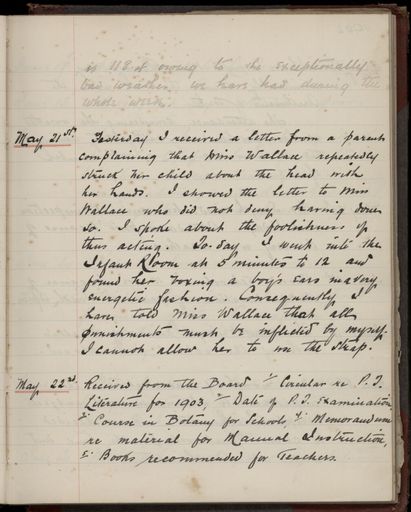 is 118.8 owing to the exceptionally
bad weather we have had during the
whole week.
May 21st. Yesterday I received a letter from a parent
complaining that Miss Wallace repeatedly
struck her child about the head with
her hands. I showed the letter to Miss
Wallace who did not deny having done
so. I spoke about the foolishness of
thus acting. To-day I went into the
Infant Room at 5 minutes to 12 and
found her boxing a boy's ears in a very
energetic fashion. Consequently I
have told Miss Wallace that all
punishments must be inflicted by myself.
I cannot allow her to use the strap.
May 22nd. Received from the Board Circular re P.T.
Literature for 1903, Date of P.T. Examination
Course in Botany for Schools, Memorandum
re material for Manual Instruction,
Books recommended for Teachers.